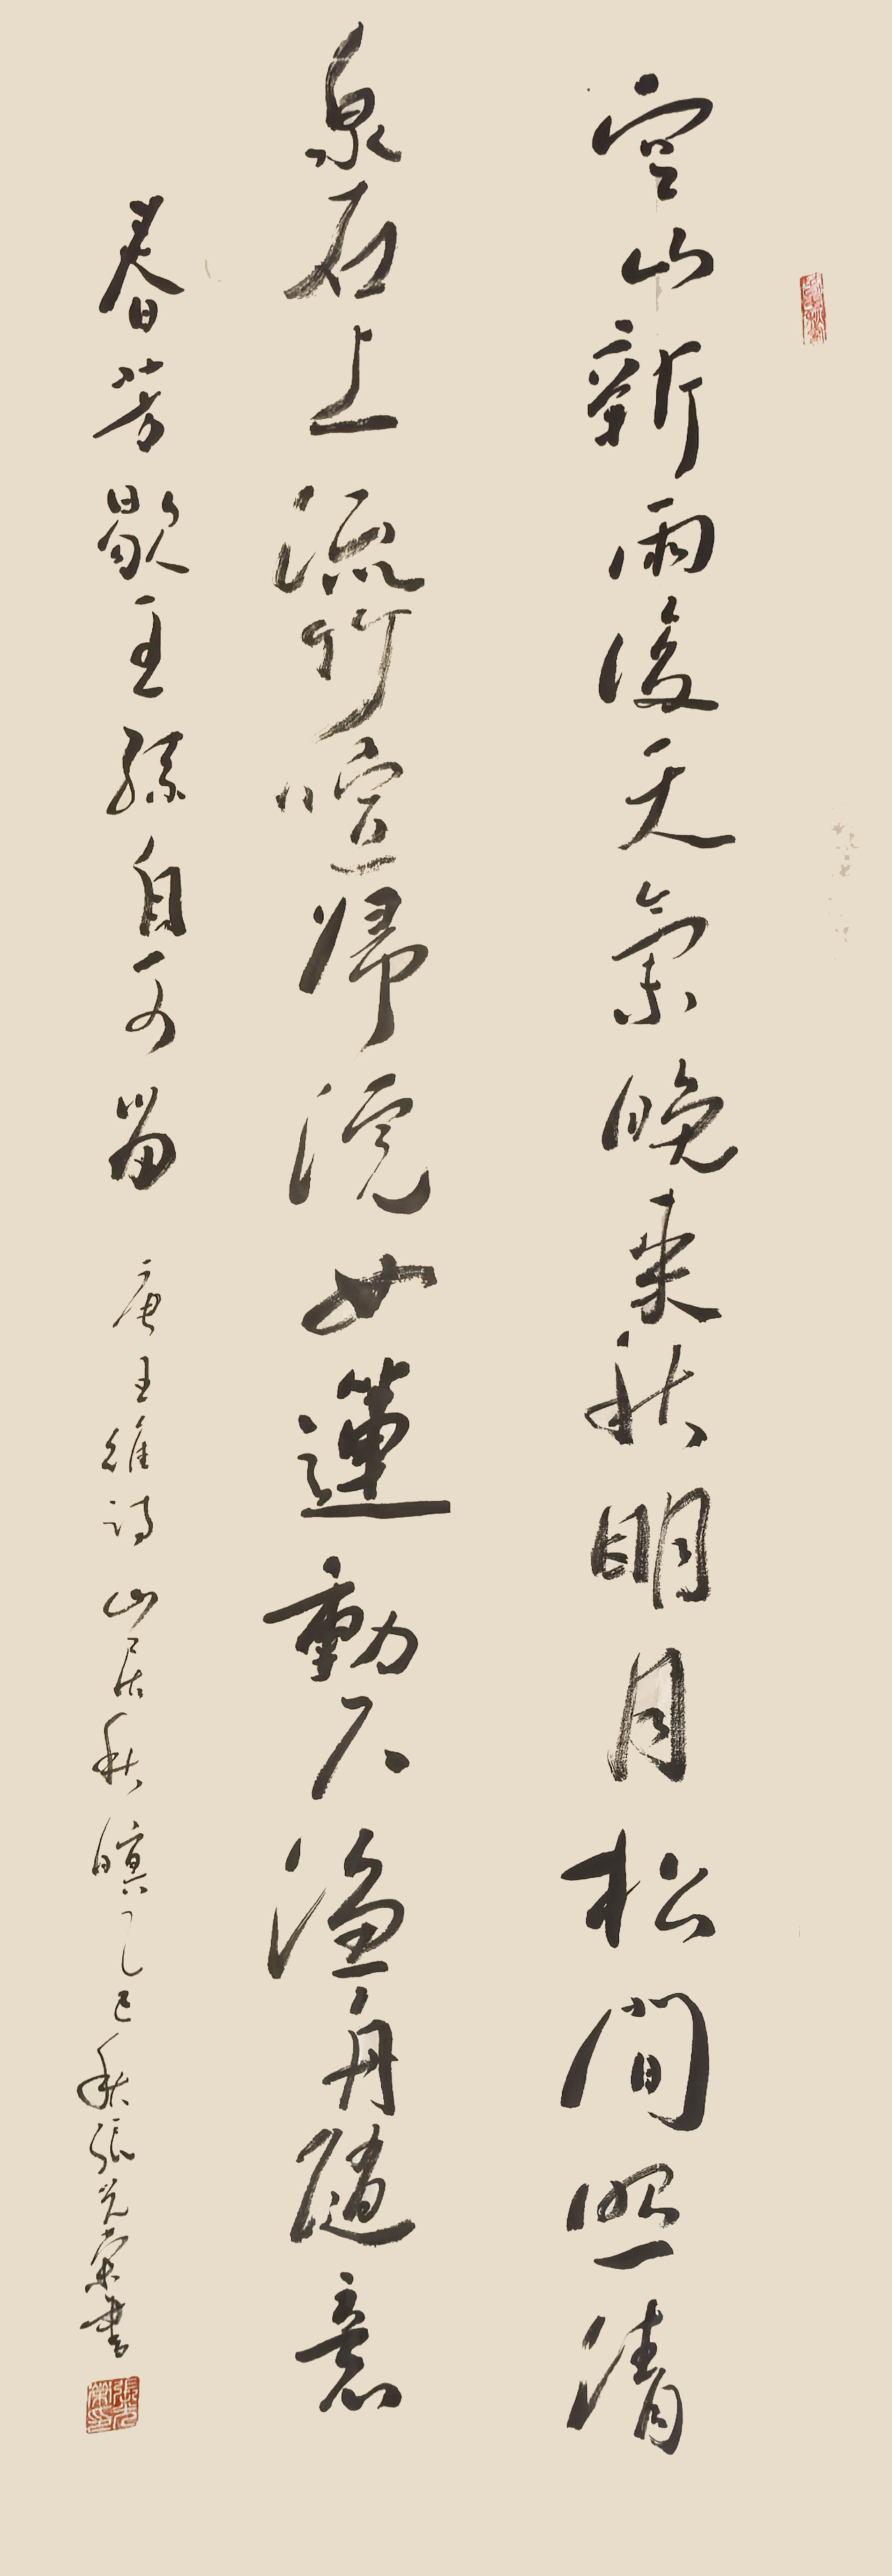 空山新雨後天氣晚來秋明月松間照清
泉石上流竹喧歸浣女蓮動下漁舟隨意
春芳歇王孫自可留 唐王維詩山居秋暝乙巳秋張光榮書